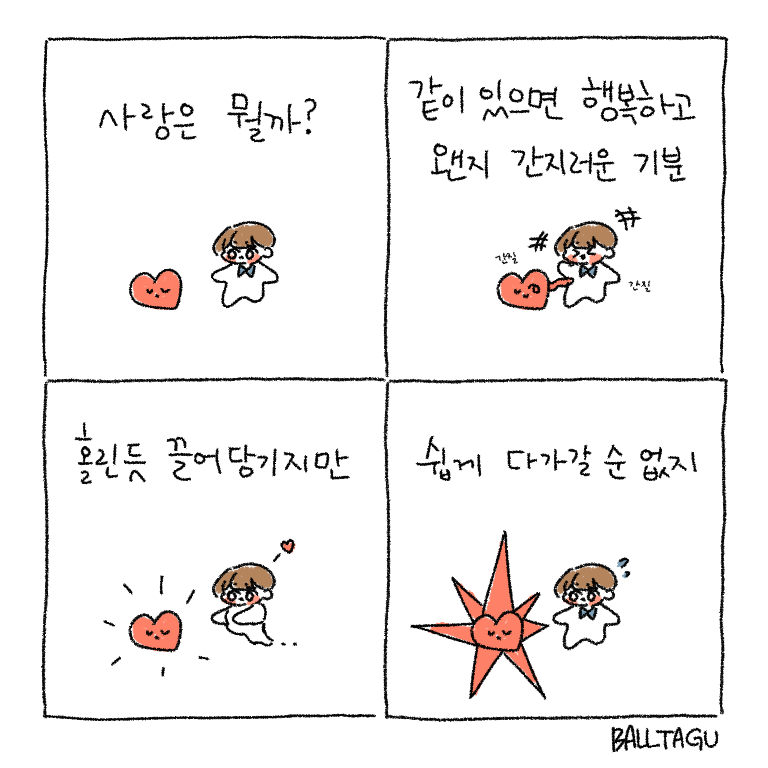 사랑은 뭘까?
같이 있으면 행복하고
왠지 간지러운 기분
간질
간질
홀린듯 끌어당기지만
쉽게 다가갈 순 없지
BALLTAGU